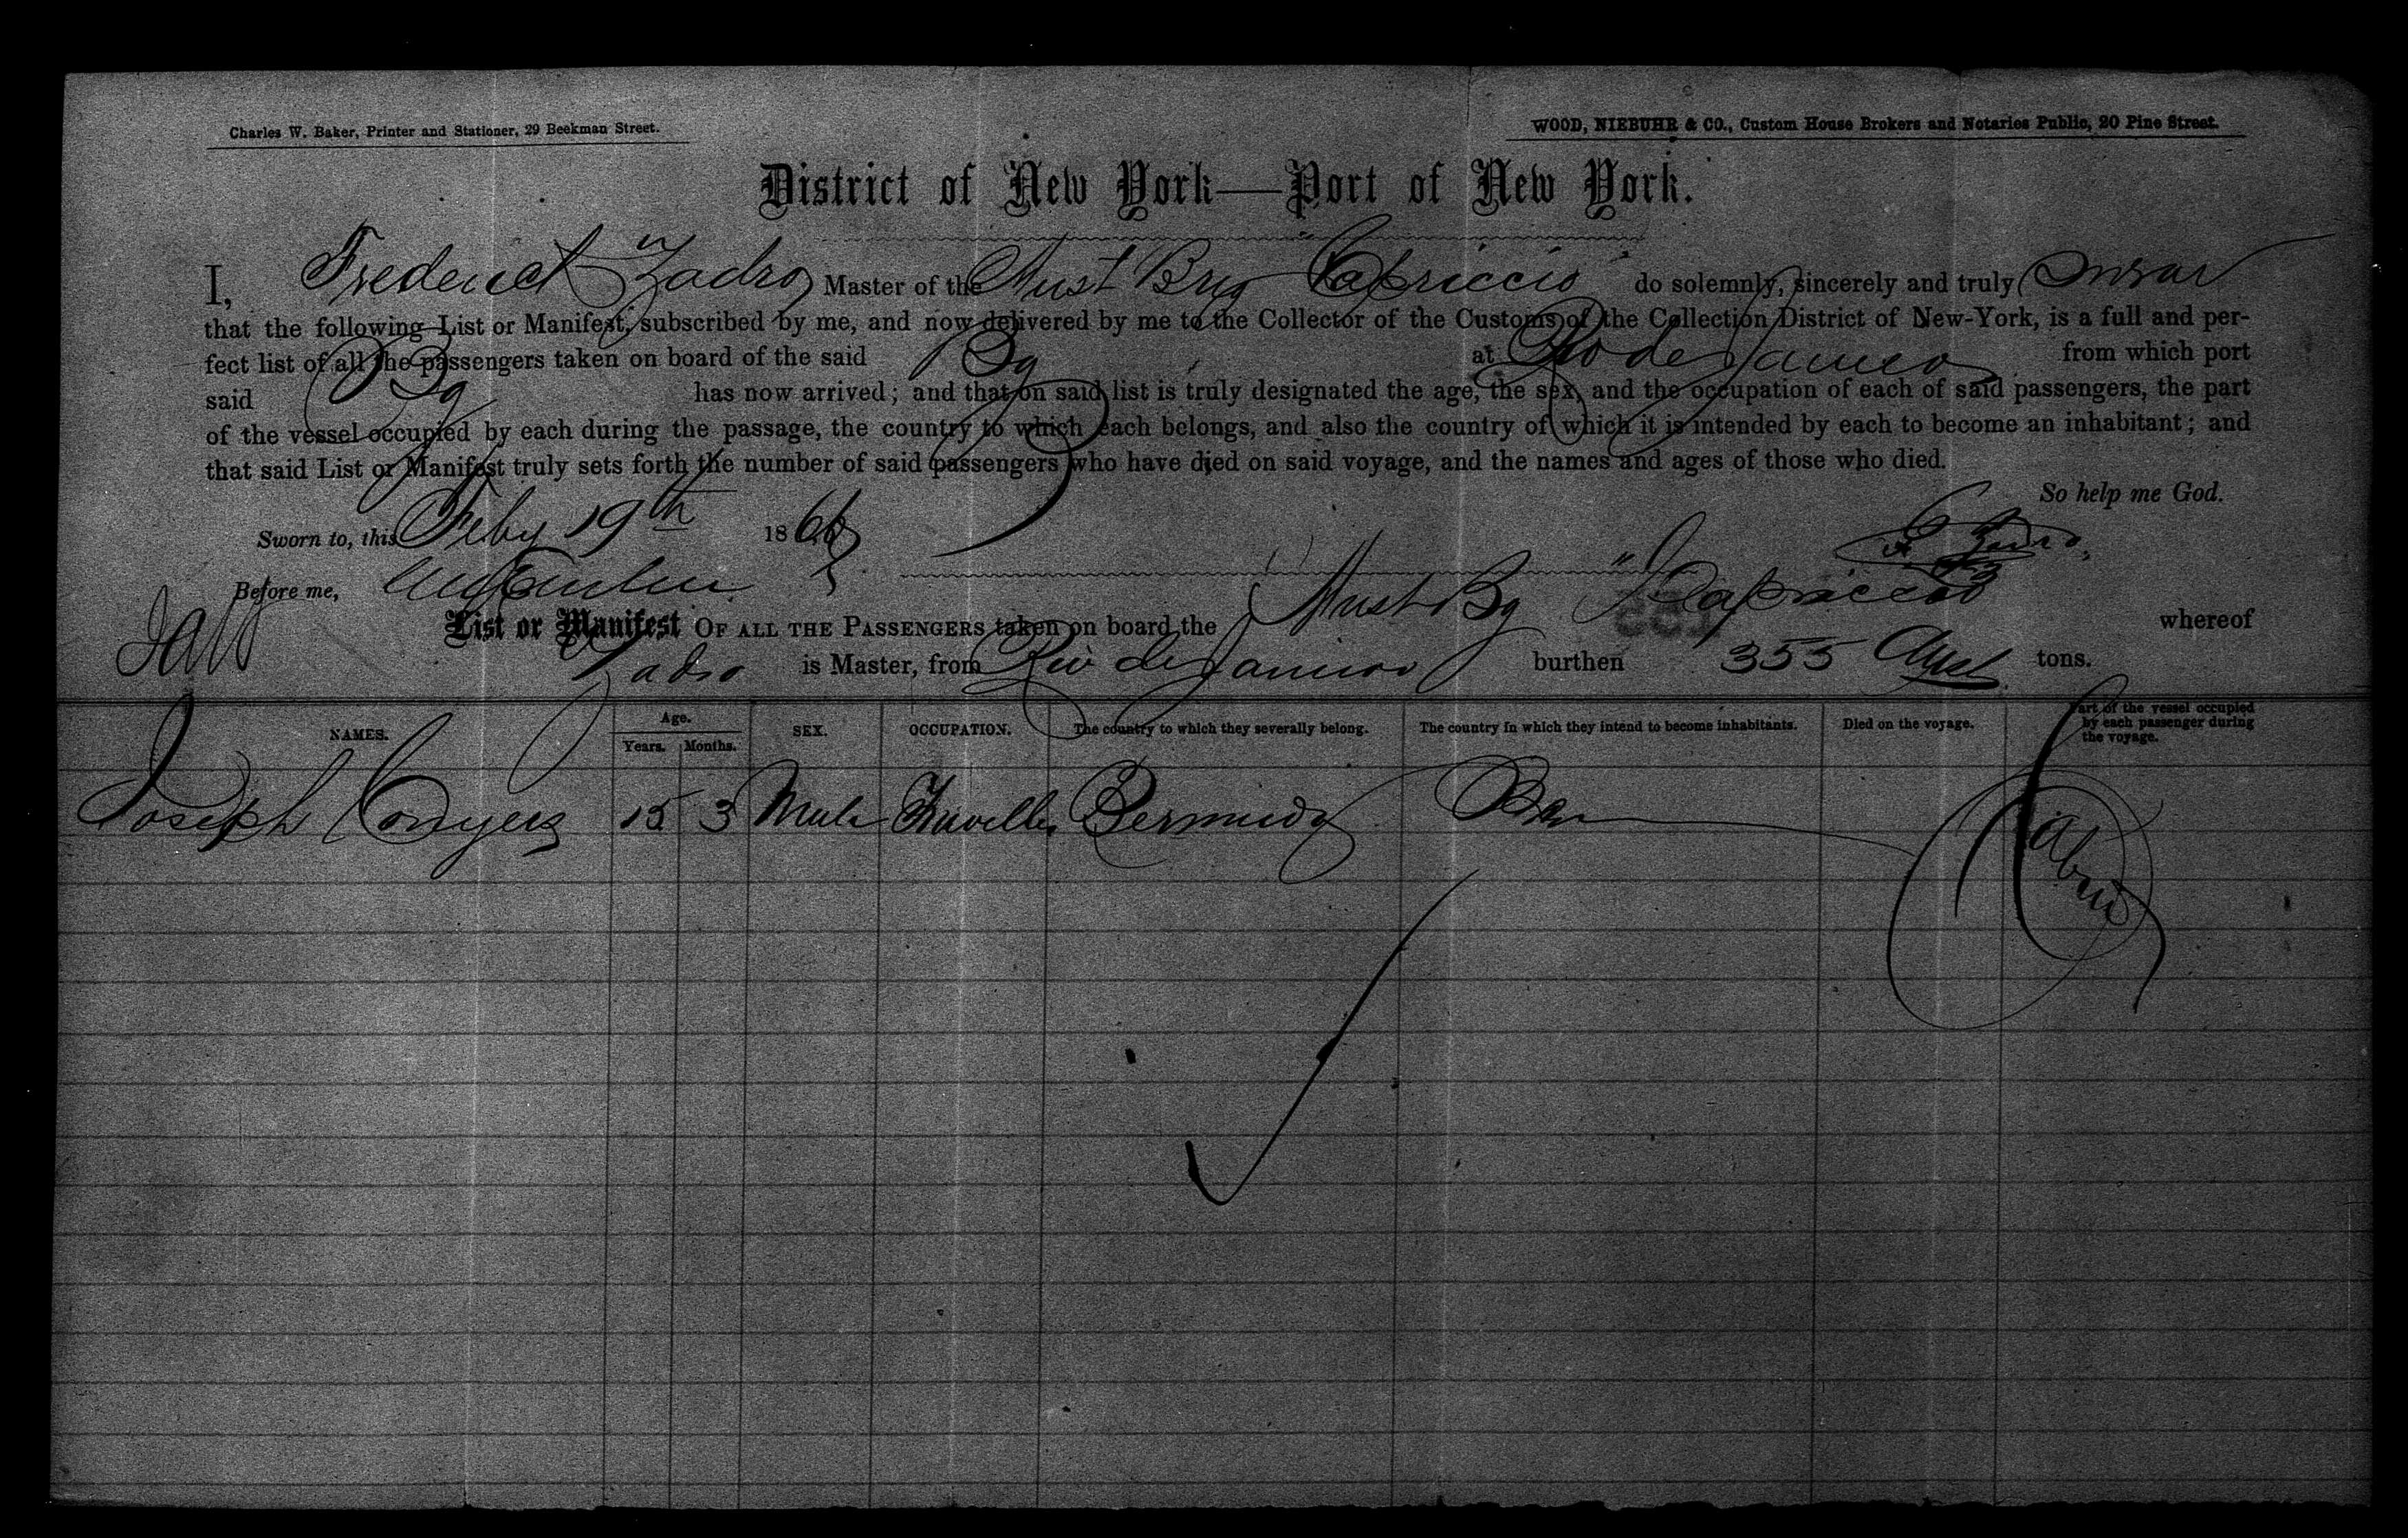 Charles W. Baker, Printer and Stationer, 29 Beekman Street.
WOOD, NIEBUHR & CO., Custom House Brokers and Notaries Public, 20 Pine Street.
District of New York—Port of New York.
I, Frederick Zadro Master of the Aust Brig "Capriccio" do solemnly, sincerely and truly swear
that the following List or Manifest, subscribed by me, and now delivered by me to the Collector of the Customs of the Collection District of New-York, is a full and per-
fect list of all the passengers taken on board of the said Bg at Rio de Janeiro from which port
said Bg has now arrived; and that on said list is truly designated the age, the sex, and the occupation of each of said passengers, the part
of the vessel occupied by each during the passage, the country to which each belongs, and also the country of which it is intended by each to become an inhabitant; and
that said List or Manifest truly sets forth the number of said passengers who have died on said voyage, and the names and ages of those who died.
So help me God.
Sworn to, this Feby 19th 1866
F Zadro
Before me,
List or Manifest OF ALL THE PASSENGERS taken on board the Aust Bg "Capriccio" whereof
Zadro is Master, from Rio de Janeiro burthen 355 tons.
NAMES. Age. Years. Months. SEX. OCCUPATION. The country to which they severally belong. The country in which they intend to become inhabitants. Died on the voyage. Part of the vessel occupied by each passenger during the voyage.
Joseph Conyers 15 3 Male Traveller Bermuda Ber Cabin